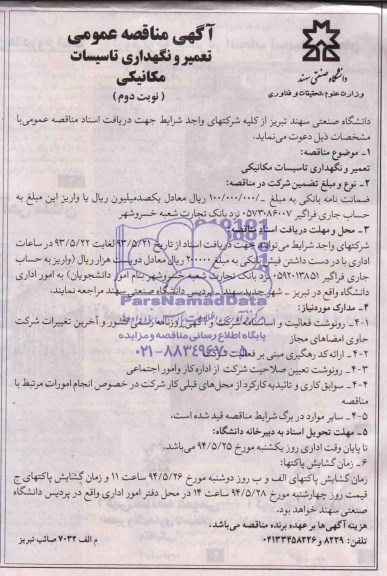 آگهی مناقصه عمومی
تعمیر و نگهداری تاسیسات
مکانیکی
( نوبت دوم )
دانشگاه صنعتی سهند
وزارت علوم، تحقیقات و فناوری
دانشگاه صنعتی سهند تبریز از کلیه شرکتهای واجد شرایط جهت دریافت اسناد مناقصه عمومی با
مشخصات ذیل دعوت می‌نماید.
۱- موضوع مناقصه:
تعمیر و نگهداری تاسیسات مکانیکی
۲- نوع و مبلغ تضمین شرکت در مناقصه:
ضمانت نامه بانکی به مبلغ ـ/۱۰۰/۰۰۰/۰۰۰ ریال معادل یکصدمیلیون ریال یا واریز این مبلغ به
حساب جاری فراگیر ۰۵۷۳۰۸۶۰۰۷ نزد بانک تجارت شعبه خسروشهر
۳- محل و مهلت دریافت اسناد مناقصه:
شرکتهای واجد شرایط می‌توانند جهت دریافت اسناد از تاریخ ۹۳/۵/۲۱ لغایت ۹۳/۵/۲۲ در ساعات
اداری با در دست داشتن فیش بانکی به مبلغ ۲۰۰۰۰۰ ریال معادل دویست هزار ریال (واریز به حساب
جاری فراگیر ۰۵۹۲۰۱۳۸۵۱ نزد بانک تجارت شعبه خسروشهر بنام امور دانشجویان) به امور اداری
دانشگاه واقع در تبریز - شهر جدید سهند - پردیس دانشگاه صنعتی سهند مراجعه نمایند.
۴- مدارک موردنیاز:
۴-۱- رونوشت فعالیت و اساسنامه شرکت و آگهی روزنامه رسمی کشور و آخرین تغییرات شرکت
حاوی امضاهای مجاز
۴-۲- ارائه کد رهگیری مبنی بر فعالیت شرکت
۴-۳- رونوشت تعیین صلاحیت شرکت از اداره کار وامور اجتماعی
۴-۴- سوابق کاری و تائیدیه کارکرد از محل‌های قبلی کار شرکت در خصوص انجام امورات مرتبط با
مناقصه
۴-۵- سایر موارد در برگ شرایط مناقصه قید شده است.
۵- مهلت تحویل اسناد به دبیرخانه دانشگاه:
تا پایان وقت اداری روز یکشنبه مورخ ۹۴/۵/۲۵ می‌باشد.
۶- زمان گشایش پاکتها:
زمان گشایش پاکتهای الف و ب روز دوشنبه مورخ ۹۴/۵/۲۶ ساعت ۱۱ و زمان گشایش پاکتهای ج
قیمت روز چهارشنبه مورخ ۹۴/۵/۲۸ ساعت ۱۴ در محل دفتر امور اداری واقع در پردیس دانشگاه
صنعتی سهند خواهد بود.
هزینه آگهی‌ها بر عهده برنده مناقصه می‌باشد.
تلفن: ۸۲۲۹ و ۰۴۱۳۳۴۵۸۲۲۶
م الف ۷۰۳۴ صائب تبریز
ParsNamadData
پایگاه اطلاع رسانی مناقصه و مزایده
۰۲۱-۸۸۳۴۹۶۷۰-۵